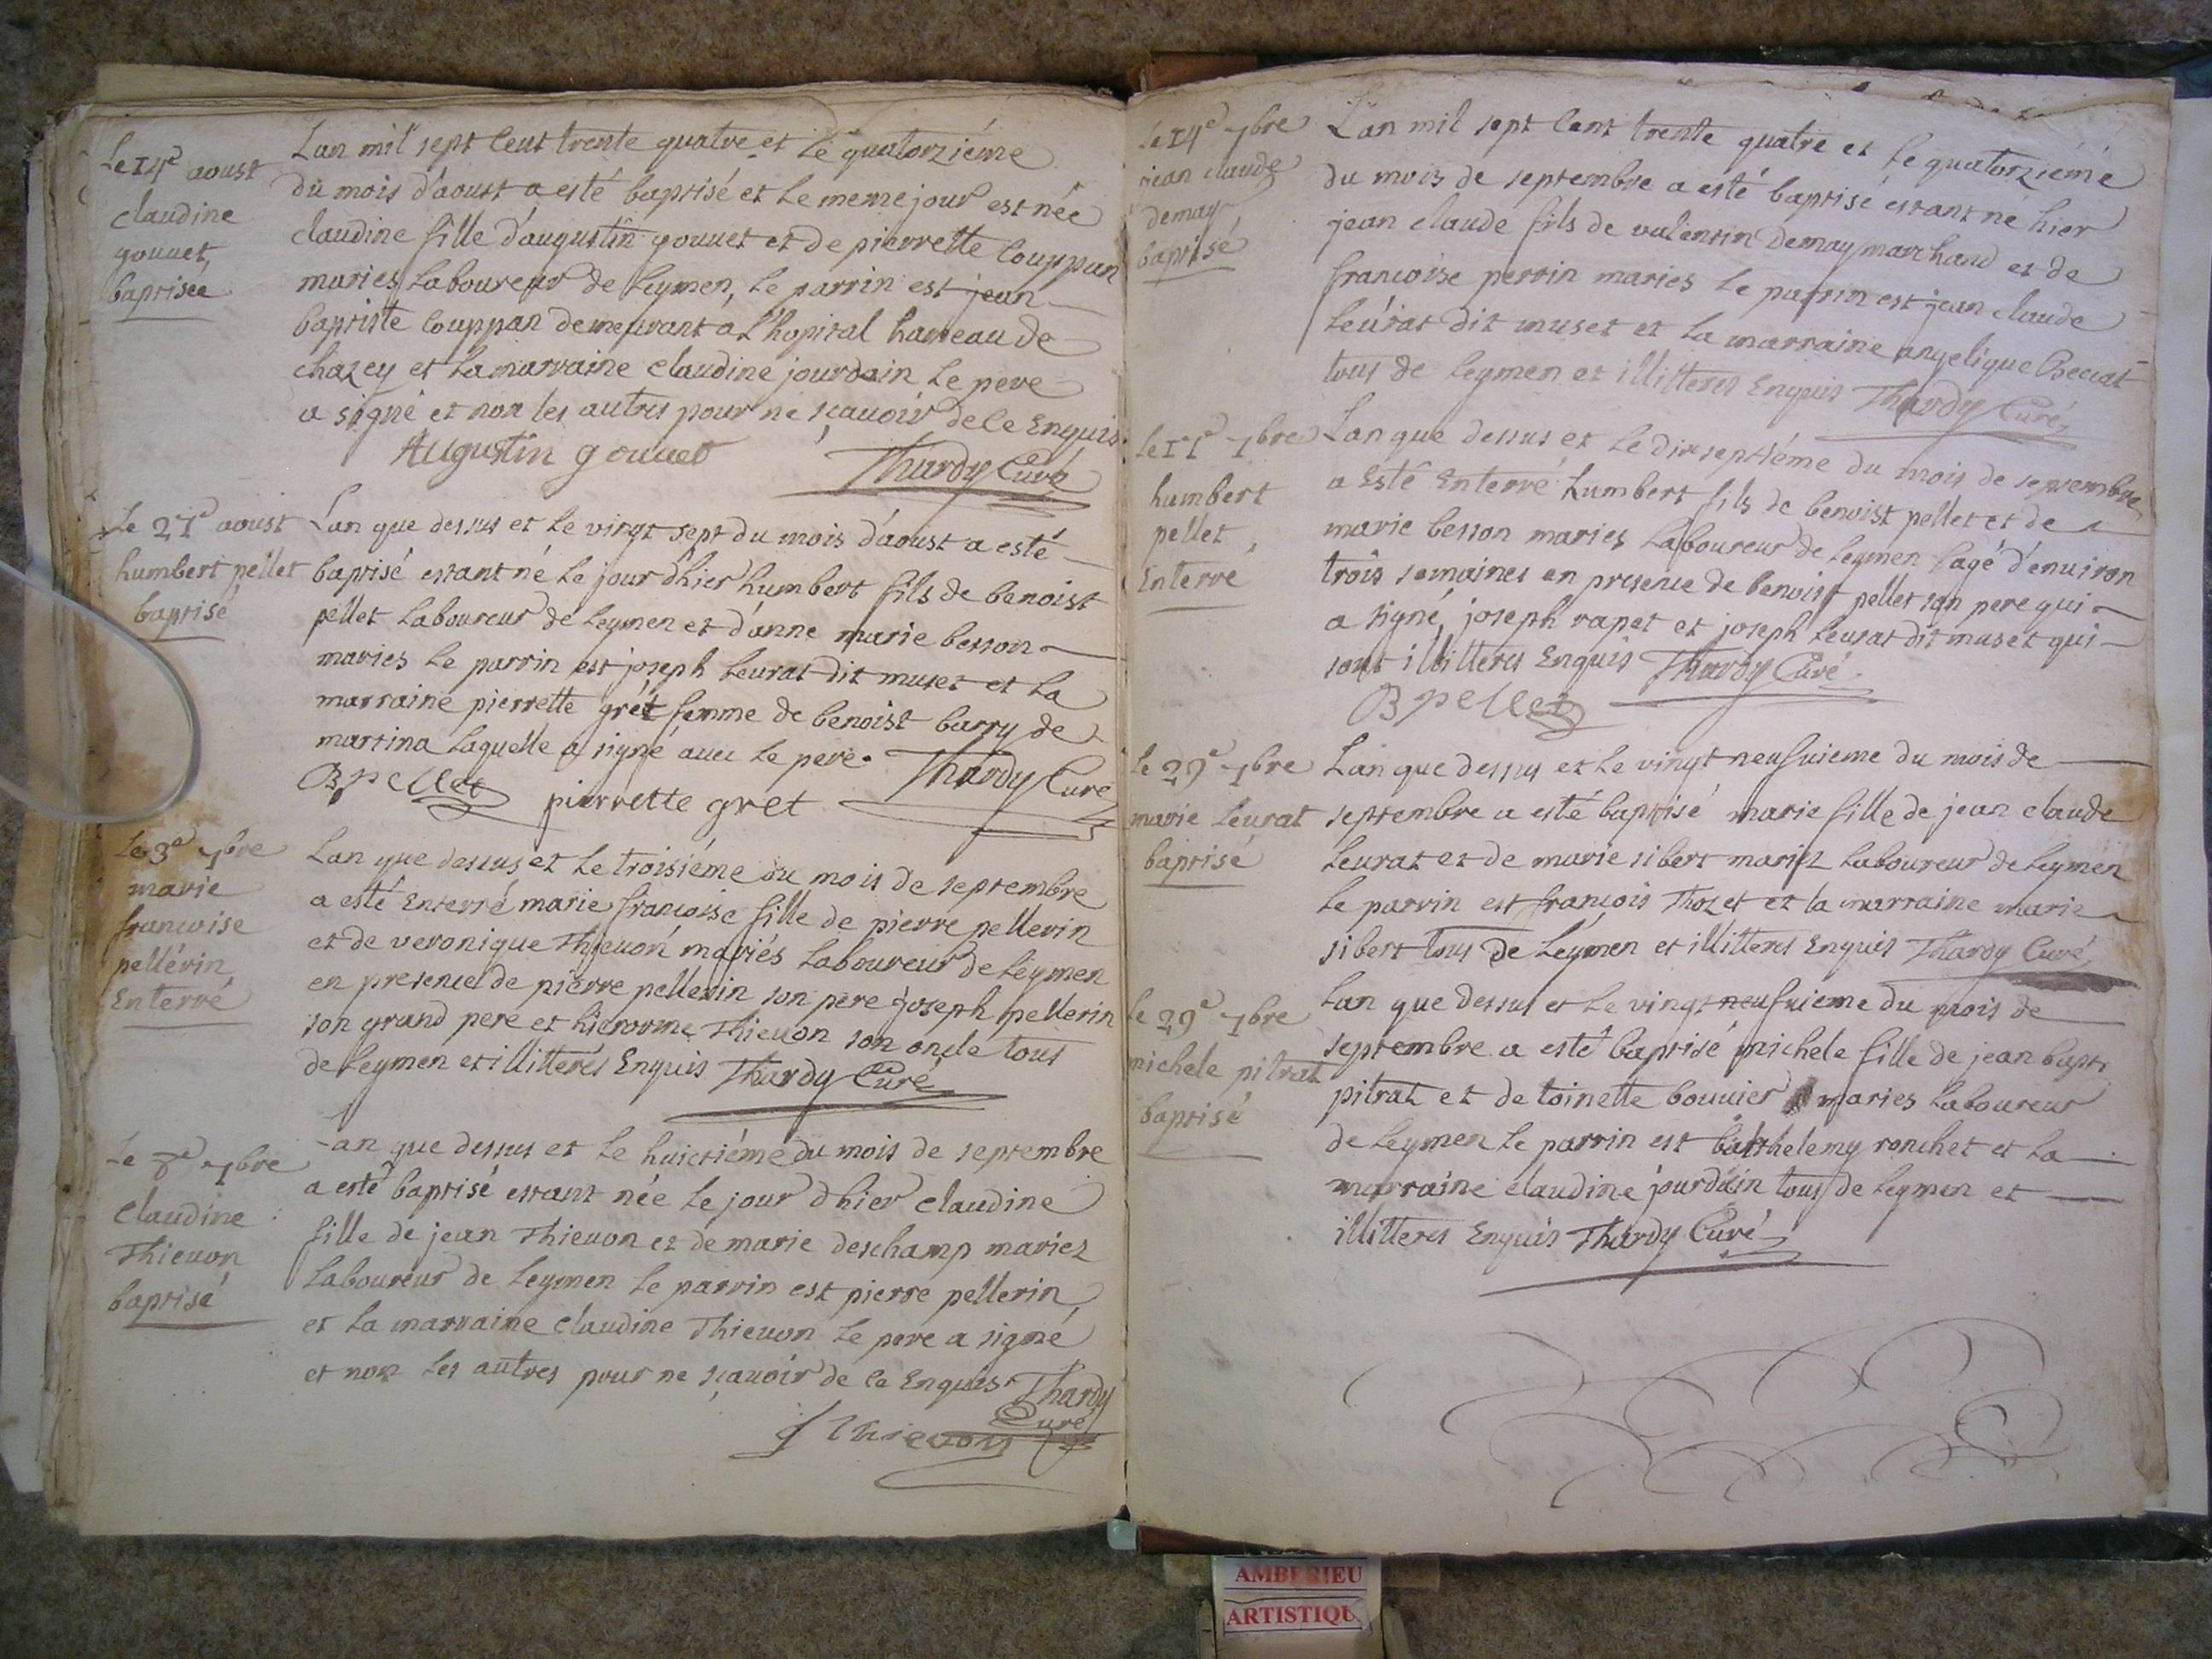 Le 14e aoust
claudine
gouuet,
baptisée
Lan mil sept Cent trente quatre et Le quatorziéme
du mois d'aoust a esté baptisé et Le meme jour est née
claudine fille d'augustin gouuet et de pierrette Couppan
maries Laboureur de Leymen, Le parrin est jean
baptiste Couppan demeurant a L'hopital hameau de
chazey et La marraine Claudine jourdain Le pere
a signé et non les autres pour ne sçauoir de Ce Enquis.
Augustin gouuet Thardy Curé
Le 27e aoust
humbert pellet
baptisé
Lan que dessus et Le vingt sept du mois d'aoust a esté
baptisé estant né Le jour d'hier humbert fils de benoist
pellet Laboureur de Leymen et d'anne marie besson
maries Le parrin est joseph Leurat dit muset et La
marraine pierrette grét femme de benoist barry de
martina Laquelle a signé auec Le pere. Thardy Curé
B pellet pierrette gret
Le 3e 7bre
marie
francoise
pellérin
Enterré
Lan que dessus et Le troisiéme du mois de septembre
a esté Enterré marie francoise fille de pierre pellerin
et de veronique Thieuon mariés Laboureur de Léymen
en presence de pierre pellerin son pere joseph pellerin
son grand pere et hierorme Thieuon son oncle tous
de Leymen et illitterés Enquis Thardy Curé
Le 8e 7bre
Claudine
Thieuon
baptisé
Lan que dessus et Le huictiéme du mois de septembre
a esté baptisé estant née Le jour d'hier Claudine
fille de jean Thieuon et de marie deschamp mariez
Laboureur de Leymen Le parrin est pierre pellerin
et La marraine Claudine Thieuon Le pere a signé
et non Les autres pour ne sçauoir de Ce Enquis. Thardy
Curé
J Thieuon
Le 14e 7bre
jean claude
demay,
baptisé
Lan mil sept Cent trente quatre et Le quatorziéme
du mois de septembre a esté baptisé estant né hier
jean claude fils de valentin demay marchand et de
francoise perrin maries Le parrin est jean claude
Leurat dit muset et La marraine angelique
tous de Leymen et illitteres Enquis Thardy Curé
Le 17e 7bre
humbert
pellet,
Enterré
Lan que dessus et Le dix septiéme du mois de septembre
a Esté Enterré humbert fils de benoist pellet et de
marie besson maries Laboureur de Leymen agé d'enuiron
trois semaines en presence de benoist pellet son pere qui
a signé, joseph rapet et joseph Leurat dit muset qui
sont illitteres Enquis Thardy Curé
B pellet
Le 29e 7bre
marie Leurat
baptisé
Lan que dessus et Le vingt neufuieme du mois de
septembre a esté baptisé marie fille de jean claude
Leurat et de marie sibert mariez Laboureur de Leymen
Le parrin est françois Thozet et la marraine marie
sibert tous de Léymen et illitteres Enquis Thardy Curé
Le 29e 7bre
michele pitrat
baptisé
Lan que dessus et Le vingt neufuieme du mois de
septembre a esté baptisé michele fille de jean bapt.
pitrat et de toinette bouuier maries Laboureur
de Leymen Le parrin est barthelemy ronchet et La
marraine claudine jourdain tous de Leymen et
illitteres Enquis Thardy Curé
AMBERIEU
ARTISTIQU